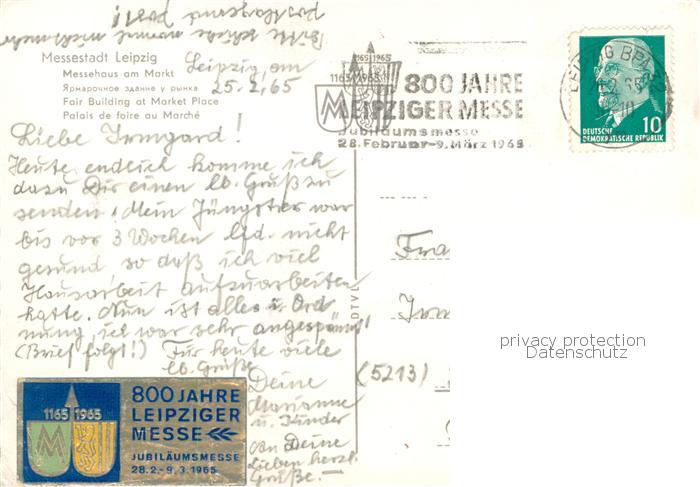 Bitte schicke nochmal
postlagernd post!
Messestadt Leipzig
Messehaus am Markt
Ярмарочное здание у рынка
Fair Building at Market Place
Palais de foire au Marché
Leipzig, am
25.2.65
1165 1965
1165 1965
M
800 JAHRE
LEIPZIGER MESSE
Jubiläumsmesse
28. Februar-9. März 1965
LEIPZIG BPA
10
DEUTSCHE
DEMOKRATISCHE REPUBLIK
10
Liebe Irmgard!
Heute endlich komme ich
dazu Dir einen lb. Gruß zu
senden! Mein Jüngster war
bis vor 3 Wochen lfd. nicht
gesund so daß ich viel
Hausarbeit aufzuarbeiten
hatte. Nun ist alles i. Ord
nung, ich war sehr angespannt!
(Brief folgt!) Für heute viele
lb. Grüße
Deine
Marianne
u. Kinder
an Deine
Lieben herzl.
Grüße.—
DTV
Fra
Irm
(5213)
privacy protection
Datenschutz
1165 1965
M
800 JAHRE
LEIPZIGER
MESSE
JUBILÄUMSMESSE
28.2.-9.3.1965